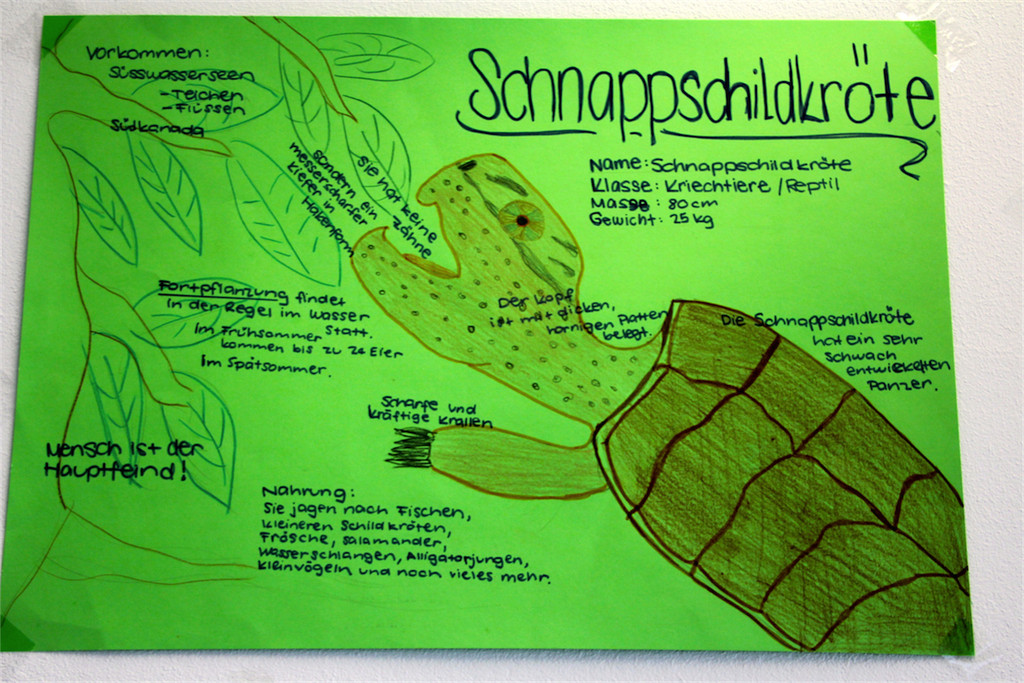 Schnappschildkröte
Vorkommen:
Süsswasserseen
-Teichen
-Flüssen
Südkanada
Name: Schnappschildkröte
Klasse: Kriechtiere / Reptil
Masse: 80cm
Gewicht: 25 kg
sie hat keine
Zähne
sondern ein
messerscharfer
Kiefer in
Hakenform
Fortpflanzung findet
in der Regel im Wasser
statt.
Im Frühsommer
kommen bis zu 24 Eier
Im Spätsommer.
Der Kopf
ist mit dicken,
hornigen Platten
belegt.
Die Schnappschildkröte
hat ein sehr
schwach
entwickelten
Panzer.
Scharfe und
kräftige Krallen
Mensch ist der
Hauptfeind!
Nahrung:
Sie jagen nach Fischen,
kleineren Schildkröten,
Frösche, Salamander,
Wasserschlangen, Alligatorjungen,
Kleinvögeln und noch vieles mehr.